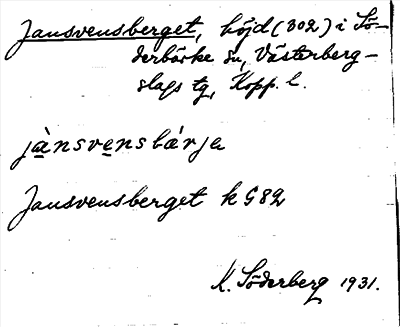 Jansvensberget, höjd (302) i Sö-
derbärke sn, Västerberg-
slags tg, Kopp. l.
jànsvensbárja
Jansvensberget k G 82
K. Söderberg 1931.